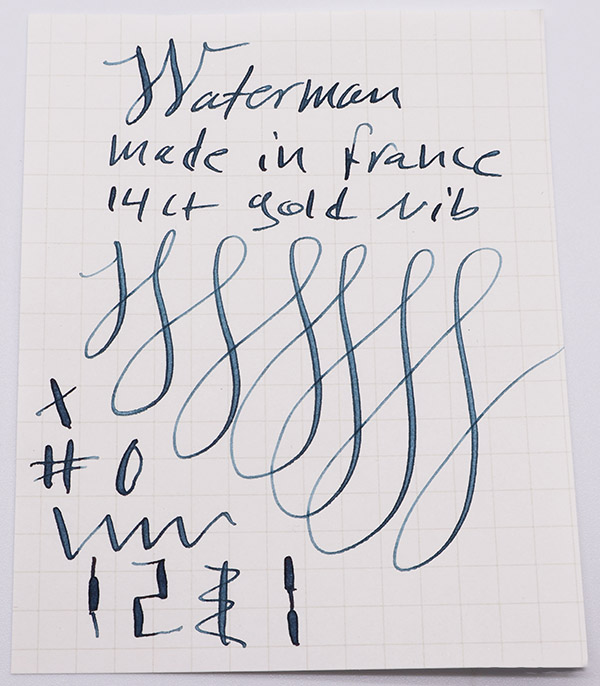 Waterman
made in france
14 ct gold nib
x
# 0
1 2